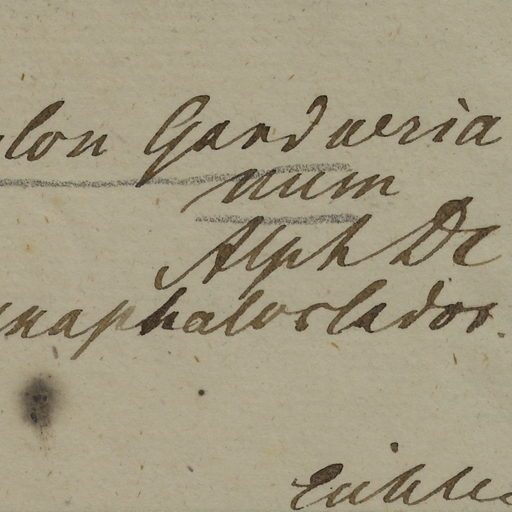 lon Gardneria
num
Alph De
gnaphaloclados.